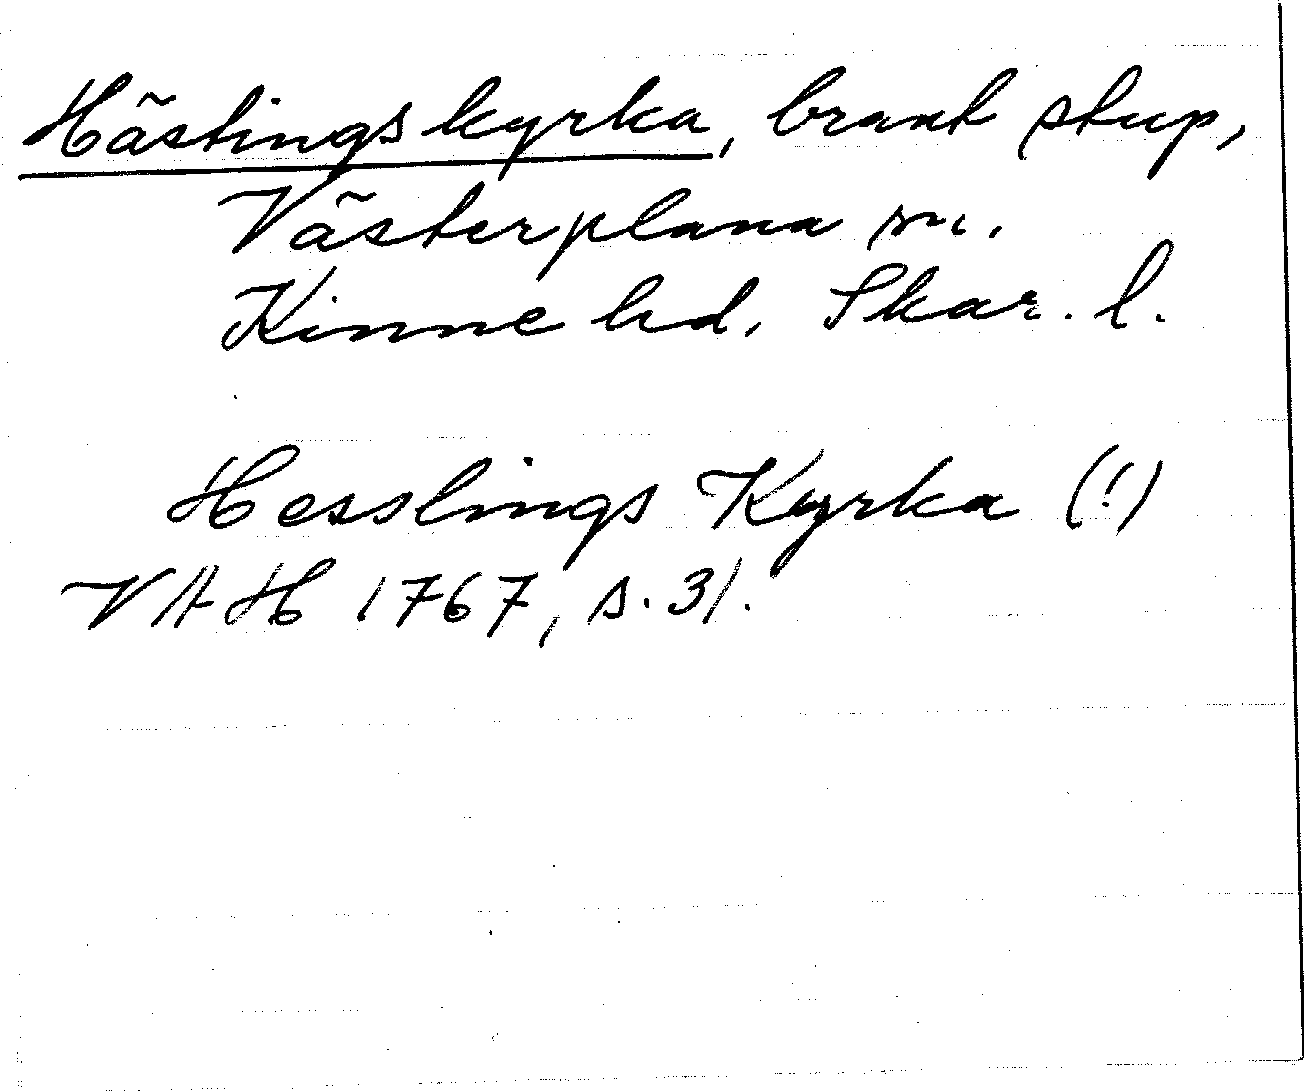 Hästingskyrka, brant stup,
Västerplana sn.
Kinne hd. Skar. l.
Hesslings Kyrka (!)
VAH 1767, s. 31.